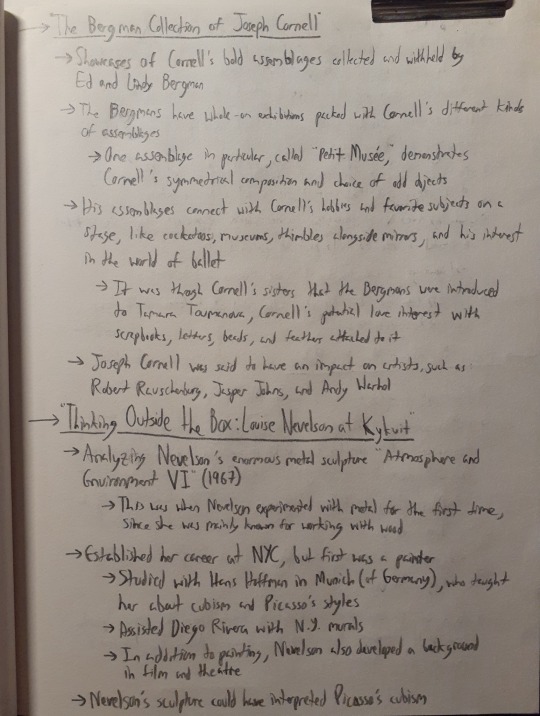 → "The Bergman Collection of Joseph Cornell"
→ Showcases of Cornell's bold assemblages collected and withheld by
Ed and Lindy Bergman
→ The Bergmans have whole-on exhibitions packed with Cornell's different kinds
of assemblages
→ One assemblage in particular, called "Petit Musée," demonstrates
Cornell's symmetrical composition and choice of odd objects
→ His assemblages connect with Cornell's hobbies and favorite subjects on a
stage, like cockatoos, museums, thimbles alongside mirrors, and his interest
in the world of ballet
→ It was through Cornell's sisters that the Bergmans were introduced
to Tamara Toumanova, Cornell's potential love interest with
scrapbooks, letters, beads, and feathers attached to it
→ Joseph Cornell was said to have an impact on artists, such as
Robert Rauschenburg, Jasper Johns, and Andy Warhol
→ "Thinking Outside the Box: Louise Nevelson at Kykuit"
→ Analyzing Nevelson's enormous metal sculpture "Atmosphere and
Environment VI" (1967)
→ This was when Nevelson experimented with metal for the first time,
since she was mainly known for working with wood
→ Established her career at NYC, but first was a painter
→ Studied with Hans Hoffman in Munich (of Germany), who taught
her about cubism and Picasso's styles
→ Assisted Diego Rivera with N.Y. murals
→ In addition to painting, Nevelson also developed a background
in film and theatre
→ Nevelson's sculpture could have interpreted Picasso's cubism